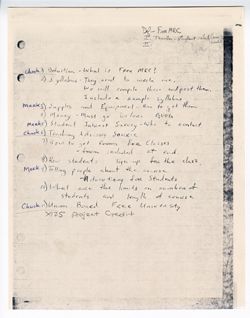 Free MEC
Chuck 1) Definition - What is Free MEC?
2) Syllabus - They need to write one,
We will compile these and post them.
Include a sample syllabus
Meeks 3) Supplies and Equipment - How to get them
4) Money - Must go before
Meeks 5) Student Interest Survey - Who to contact
Chuck 6) Teaching Advisory Service
7) How to get rooms for classes
- form included at end
8) How students sign up for the class,
Meek 9) Telling people about the course
- Advertising for Students
What are the limits on number of
students and length of course
Chuck Union Board Free University
X125 Project Credit